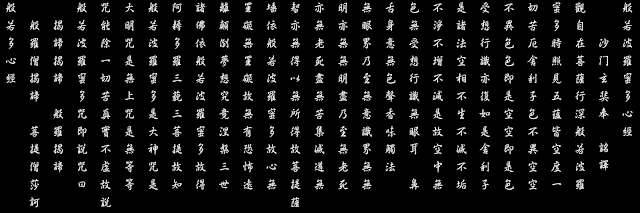 般若波羅蜜多心經
沙門玄奘奉 詔譯
觀自在菩薩行深般若波羅
蜜多時照見五蘊皆空度一
切苦厄舍利子色不異空空
不異色色即是空空即是色
受想行識亦復如是舍利子
是諸法空相不生不滅不垢
不淨不增不減是故空中無
色無受想行識無眼耳 鼻
舌身意無色聲香味觸法
無眼界乃至無意識界無無
明亦無無明盡乃至無老死
亦無老死盡無苦集滅道無
智亦無得以無所得故菩提薩
埵依般若波羅蜜多故心無
罣礙無罣礙故無有恐怖遠
離顛倒夢想究竟涅槃三世
諸佛依般若波羅蜜多故得
阿耨多羅三藐三菩提故知
般若波羅蜜多是大神咒是
大明咒是無上咒是無等等
咒能除一切苦真實不虛故說
般若波羅蜜多咒即說咒曰
揭諦揭諦 般羅揭諦
般羅僧揭諦 菩提僧莎訶
般若多心經